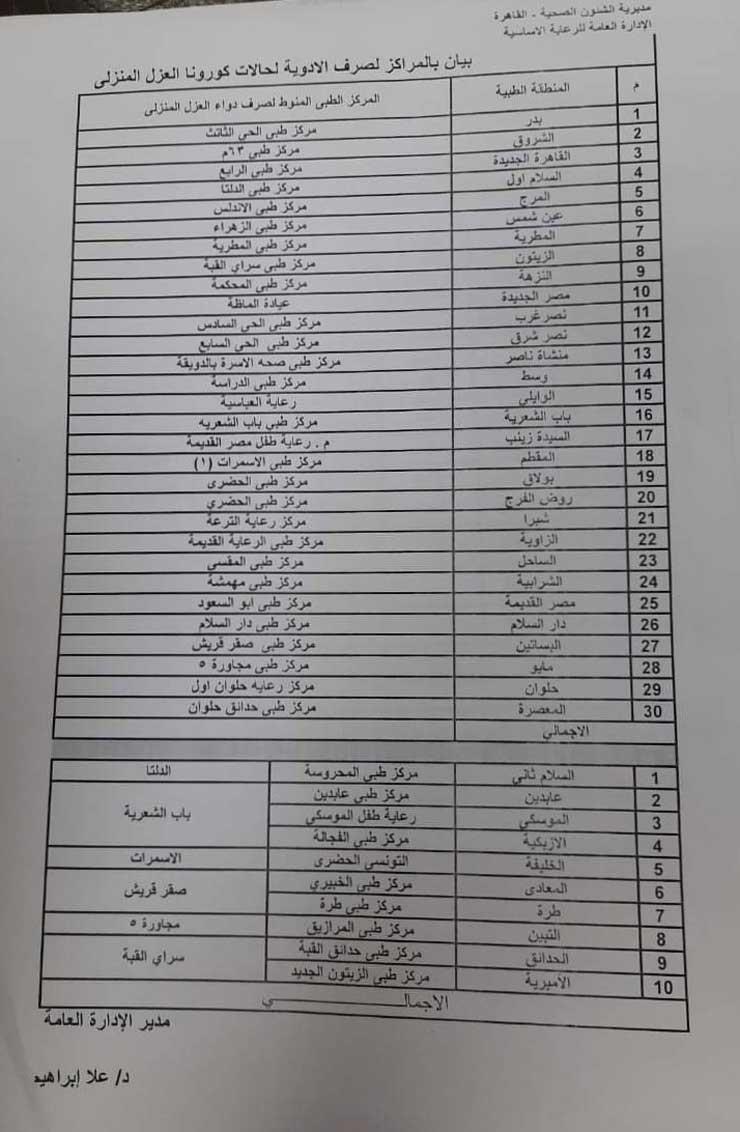 مديرية الشئون الصحية - القاهرة
الإدارة العامة للرعاية الاساسية
بيان بالمراكز لصرف الادوية لحالات كورونا العزل المنزلى
م المنطقة الطبية المركز الطبى المنوط لصرف دواء العزل المنزلى
1 بدر مركز طبى الحى الثالث
2 الشروق مركز طبى ٦٣م
3 القاهرة الجديدة مركز طبى الرابع
4 السلام اول مركز طبى الدلتا
5 المرج مركز طبى الاندلس
6 عين شمس مركز طبى الزهراء
7 المطرية مركز طبى المطرية
8 الزيتون مركز طبى سراي القبة
9 النزهة مركز طبى المحكمة
10 مصر الجديدة عيادة الماظة
11 نصر غرب مركز طبى الحى السادس
12 نصر شرق مركز طبى الحى السابع
13 منشاة ناصر مركز طبى صحه الاسرة بالدويقة
14 وسط مركز طبى الدراسة
15 الوايلي رعاية العباسية
16 باب الشعرية مركز طبي باب الشعريه
17 السيدة زينب م . رعاية طفل مصر القديمة
18 المقطم مركز طبى الاسمرات (١)
19 بولاق مركز طبى الحضرى
20 روض الفرج مركز طبى الحضري
21 شبرا مركز رعاية الترعة
22 الزاوية مركز طبى الرعاية القديمة
23 الساحل مركز طبى المقسي
24 الشرابية مركز طبى مهمشة
25 مصر القديمة مركز طبى ابو السعود
26 دار السلام مركز طبى دار السلام
27 البساتين مركز طبى صقر قريش
28 مايو مركز طبى مجاورة ٥
29 حلوان مركز رعايه حلوان اول
30 المعصرة مركز طبى حدائق حلوان
الاجمالي
1 السلام ثاني مركز طبي المحروسة الدلتا
2 عابدين مركز طبي عابدين باب الشعرية
3 الموسكي رعاية طفل الموسكي
4 الازبكية مركز طبى الفجالة
5 الخليفة التونسى الحضرى الاسمرات
6 المعادى مركز طبى الخبيري صقر قريش
7 طرة مركز طبي طرة
8 التبين مركز طبى المرازيق مجاورة ٥
9 الحدائق مركز طبى حدائق القبة سراي القبة
10 الأميرية مركز طبى الزيتون الجديد
الاجمالـــــــــــــــــي
مدير الإدارة العامة
د/ علا إبراهيم